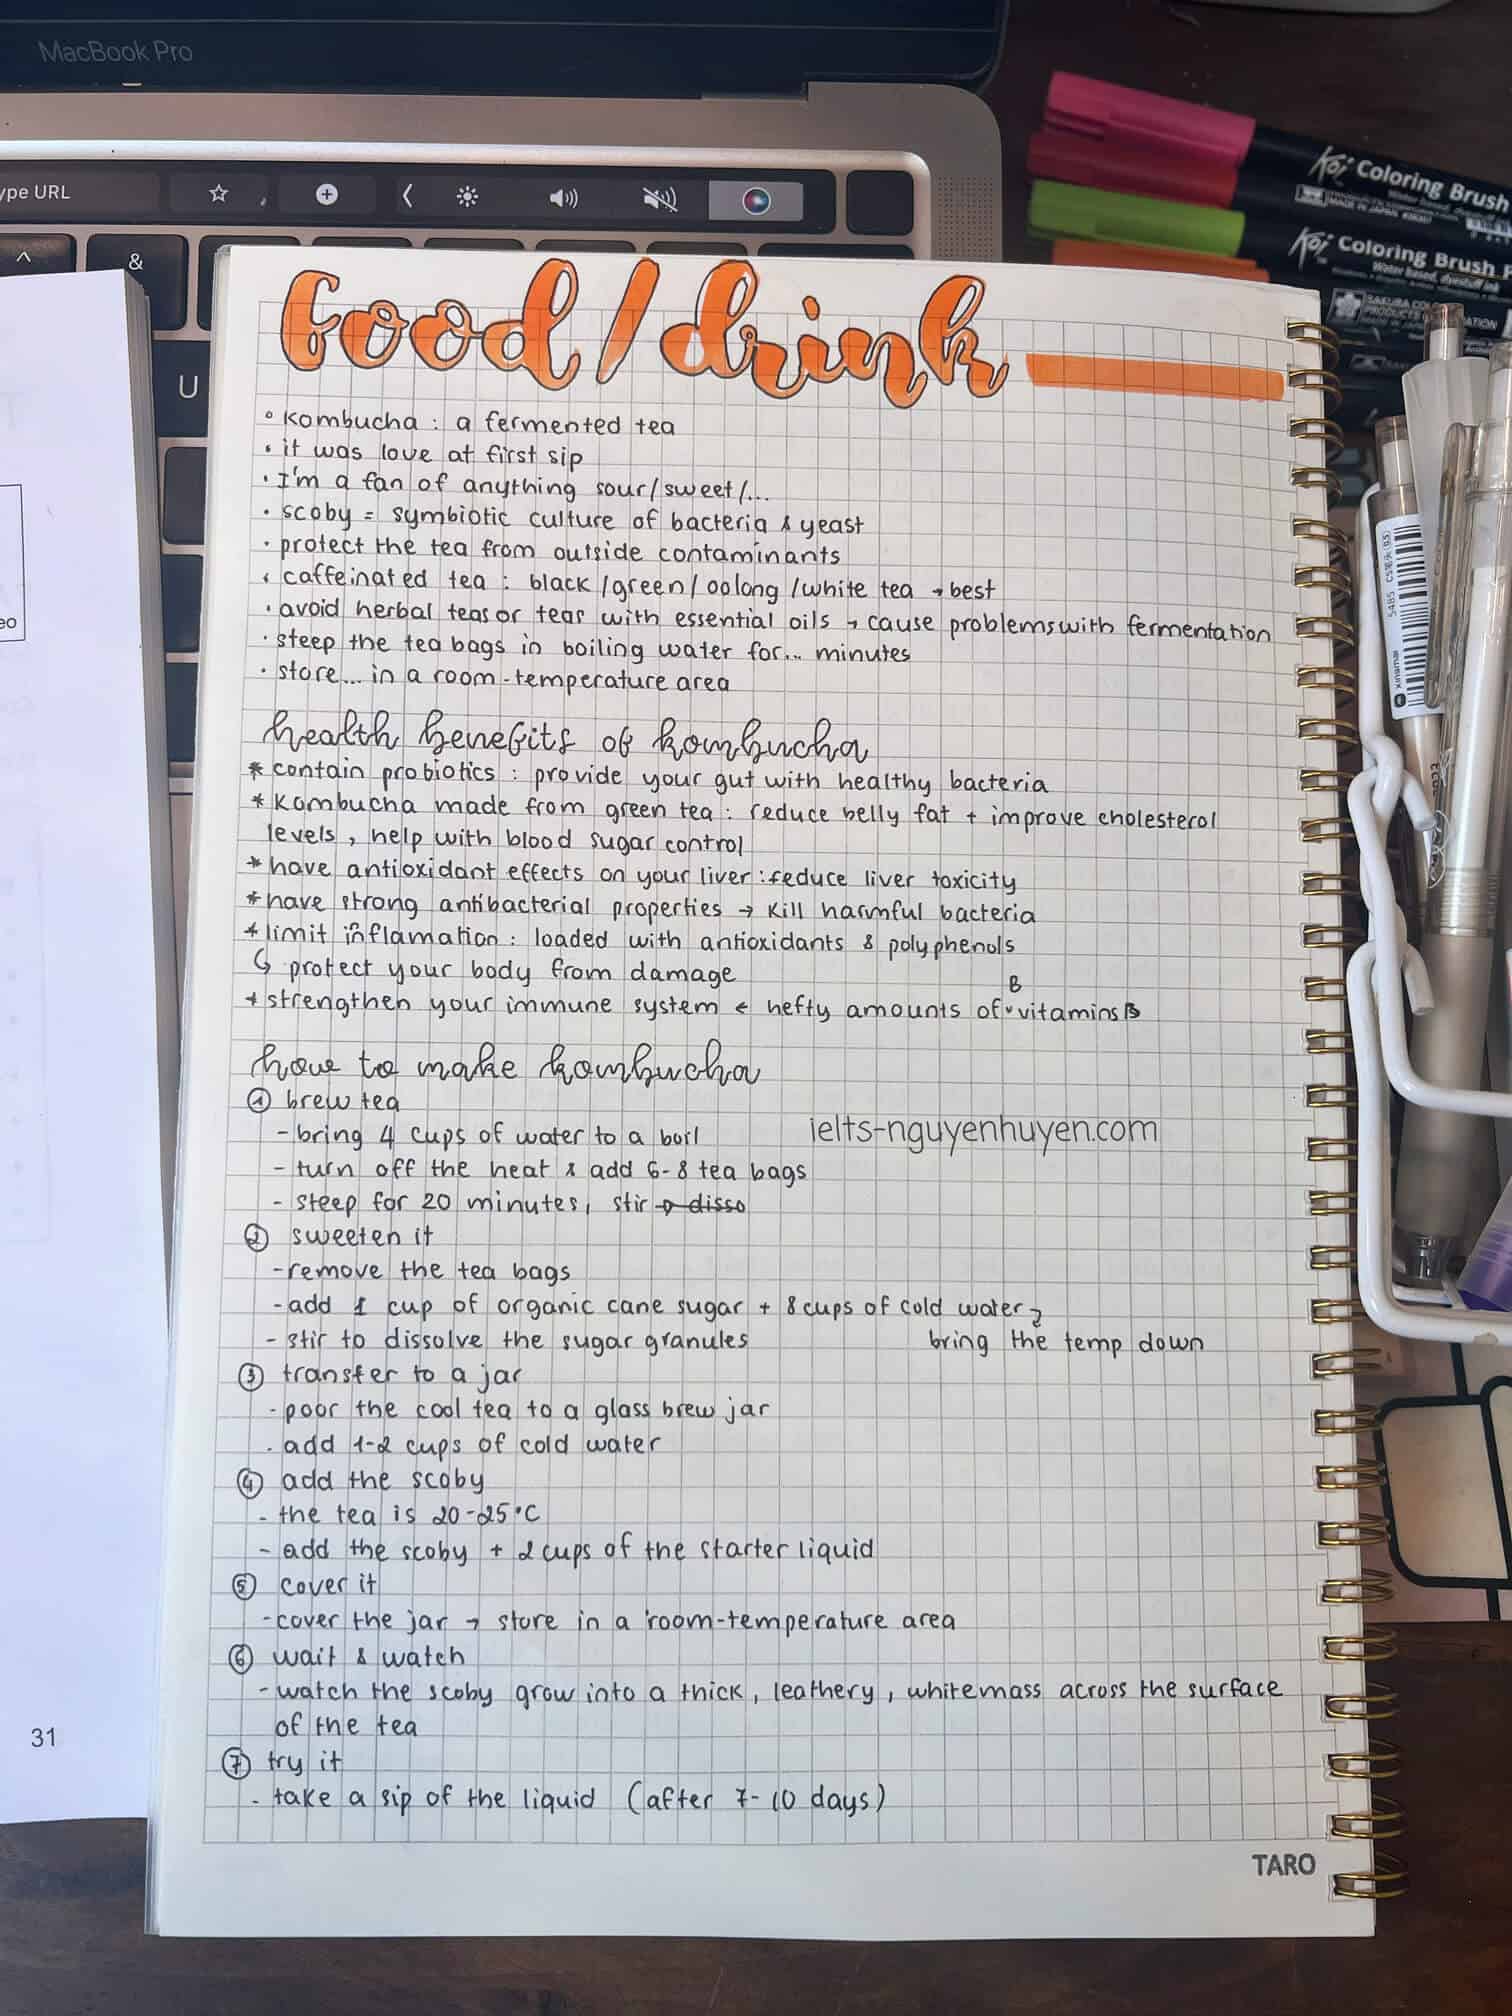 MacBook Pro
ype URL
^
&
U
eo
31
Koi Coloring Brush
MADE IN JAPAN
Koi Coloring Brush P
Water based, dyestuff ink
xinamai
Food/drink
• kombucha : a fermented tea
• it was love at first sip
• I'm a fan of anything sour/sweet/...
• scoby = symbiotic culture of bacteria & yeast
• protect the tea from outside contaminants
• caffeinated tea : black/green/oolong/white tea → best
• avoid herbal teas or teas with essential oils → cause problems with fermentation
• steep the tea bags in boiling water for... minutes
• store... in a room-temperature area
health benefits of kombucha
* contain probiotics : provide your gut with healthy bacteria
* Kombucha made from green tea : reduce belly fat + improve cholesterol
levels, help with blood sugar control
* have antioxidant effects on your liver : reduce liver toxicity
* have strong antibacterial properties → kill harmful bacteria
* limit inflamation : loaded with antioxidants & polyphenols
↳ protect your body from damage
* strengthen your immune system ← hefty amounts of B vitamins
how to make kombucha
① brew tea
- bring 4 cups of water to a boil
ielts-nguyenhuyen.com
- turn off the heat & add 6-8 tea bags
- steep for 20 minutes, stir → disso
② sweeten it
- remove the tea bags
- add 1 cup of organic cane sugar + 8 cups of cold water
- stir to dissolve the sugar granules bring the temp down
③ transfer to a jar
- poor the cool tea to a glass brew jar
- add 1-2 cups of cold water
④ add the scoby
- the tea is 20-25°C
- add the scoby + 2 cups of the starter liquid
⑤ cover it
- cover the jar → store in a room-temperature area
⑥ wait & watch
- watch the scoby grow into a thick, leathery, white mass across the surface
of the tea
⑦ try it
- take a sip of the liquid (after 7-10 days)
TARO